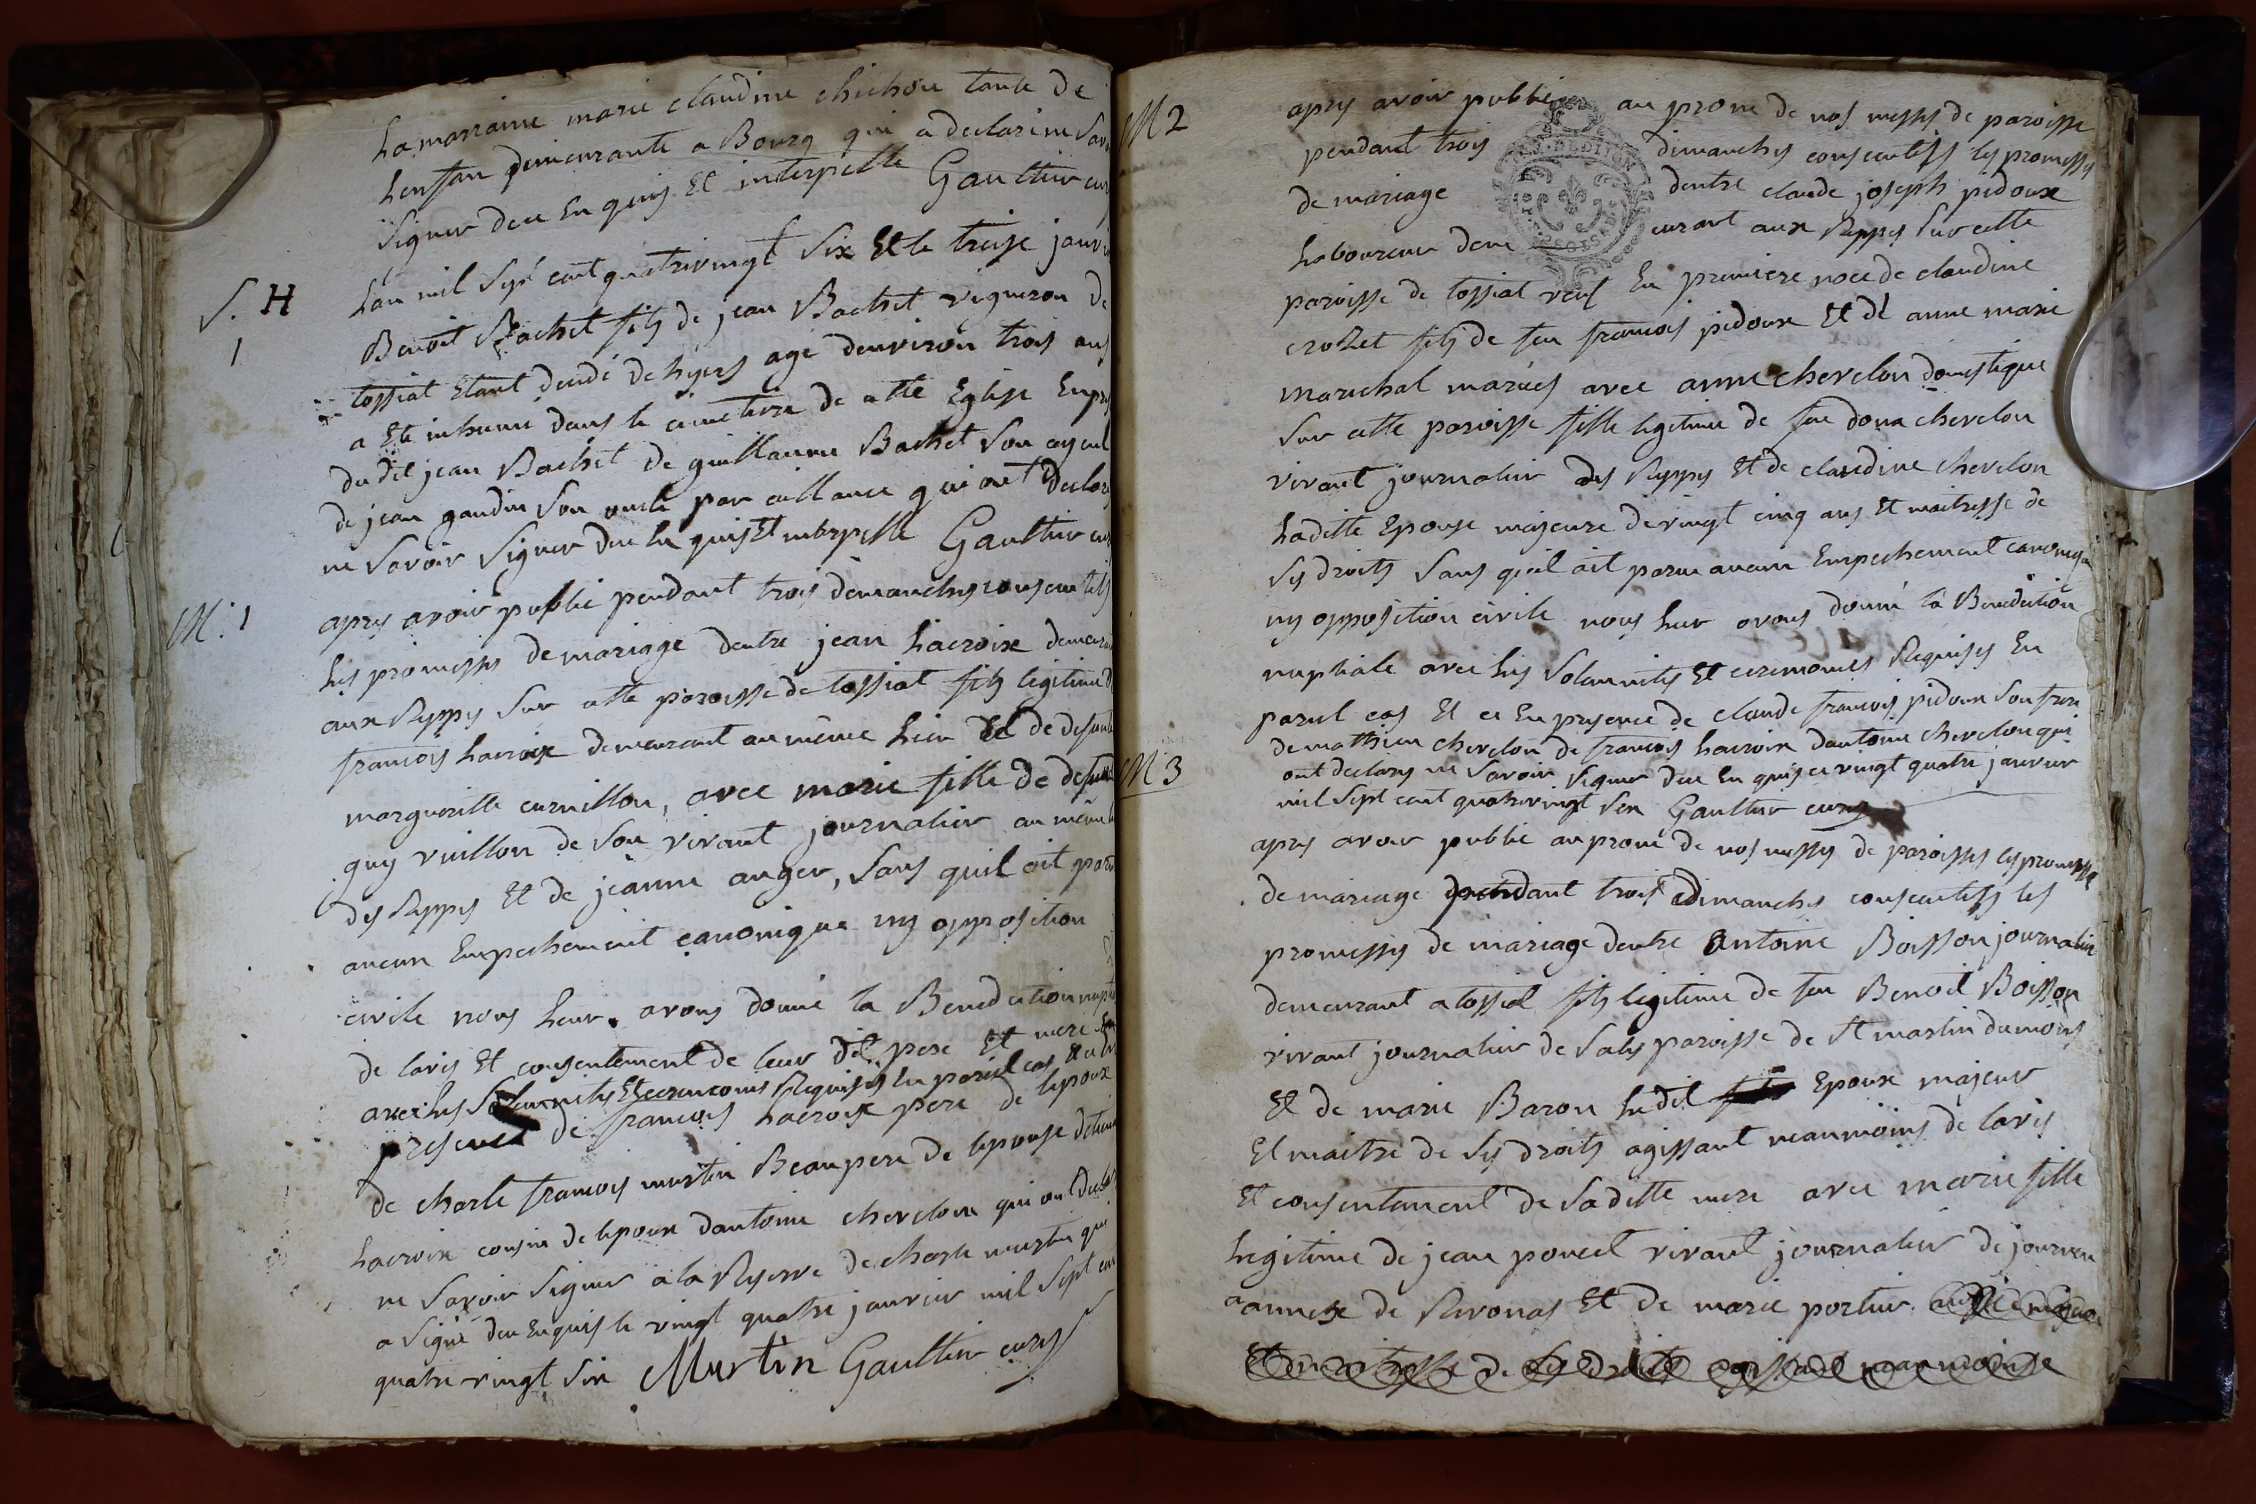 la marraine marie claudine chichou tante de
lenfan demeurante a Bourg qui a declaré ne savoir
signer deu Enquis Et interpellé Gaultier curé
S. H
1
Lan mil sept cent quatrevingt six Et le treize janvi
Benoit Bachet fils de jean Bachet vigneron de
tossiat Etant decedé de hyers agé denviron trois ans
a Eté inhumé dans le cimetiere de cette Eglise En prs
dudit jean Bachet de guillaume Bachet son ayeul
de jean gaudin son oncle par aillance qui ont declaré
ne savoir signer deu En quis Et interpellé Gaultier curé
M. 1
apres avoir publié pendant trois dimanches consecutifs
les promesses de mariage dentre jean lacroix demeura
aux Rippes sur cette paroisse de tossiat fils legitime d
francois lacroix demeurant au même lieu Et de defunte
marguerite curnillon, avec marie fille de defunt
guy vuillon de son vivant journalier au même l
des Rippes Et de jeanne anger, sans quil ait paru
aucun Empechement canonique ny opposition
civile nous leur avons donné la Benediction nupti
de lavis Et consentement de leur dit pere Et mere
avec les solemnites Et ceremonies Requises En pareil cas Et en
presence de francois lacroix pere de lepoux
de charle francois murtin Beaupere de lepouse detienn
lacroix cousin de lepoux dantoine chevelon qui ont declaré
ne savoir signer a la Reserve de charle murtin qui
a signé deu Enquis le vingt quatre janvier mil sept cen
quatre vingt six Murtin Gaultier curé
M 2
apres avoir publié au prone de nos messes de paroisse
pendant trois dimanches consecutifs les promesses
de mariage dentre claude joseph pidoux
laboureur deme urant aux Rippes sur cette
paroisse de tossiat veuf En premiere noce de claudine
crozet fils de feu francois pidoux Et de anne marie
marechal mariés avec anne chevelon domestique
sur cette paroisse fille legitime de feu dona chevelon
vivant journalier des Rippes Et de claudine chevelon
ladette Epouse majeure de vingt cinq ans Et maitresse de
ses droits sans quil ait paru aucun Empechement canoniqu
ny opposition civile nous leur avons donné la Benediction
nuptiale avec les solemnites Et ceremonies Requises En
pareil cas Et ce En presence de claude francois pidoux son frere
de mathieu chevelon de francois lacroix dantoine chevelon qui
ont declarés ne savoir signer deu En quis ce vingt quatre janvier
mil sept cent quatrevingt six Gaultier curé
M 3
apres avoir publié au prone de nos messes de paroisses les promesse
de mariage pendant trois dimanches consecutifs les
promesses de mariage dentre antoine Boisson journalier
demeurant a tossiat fils legitime de feu Benoit Boisson
vivant journalier de Sales paroisse de st martin dumont
Et de marie Baron ledit Epoux majeur
Et maitre de ses droits agissant neanmoins de lavis
Et consentement de sadette mere avec marie fille
legitime de jean poncet vivant journalier de journan
annexe de Revonas Et de marie portier
Et maitresse de ses droits agissant neanmoins